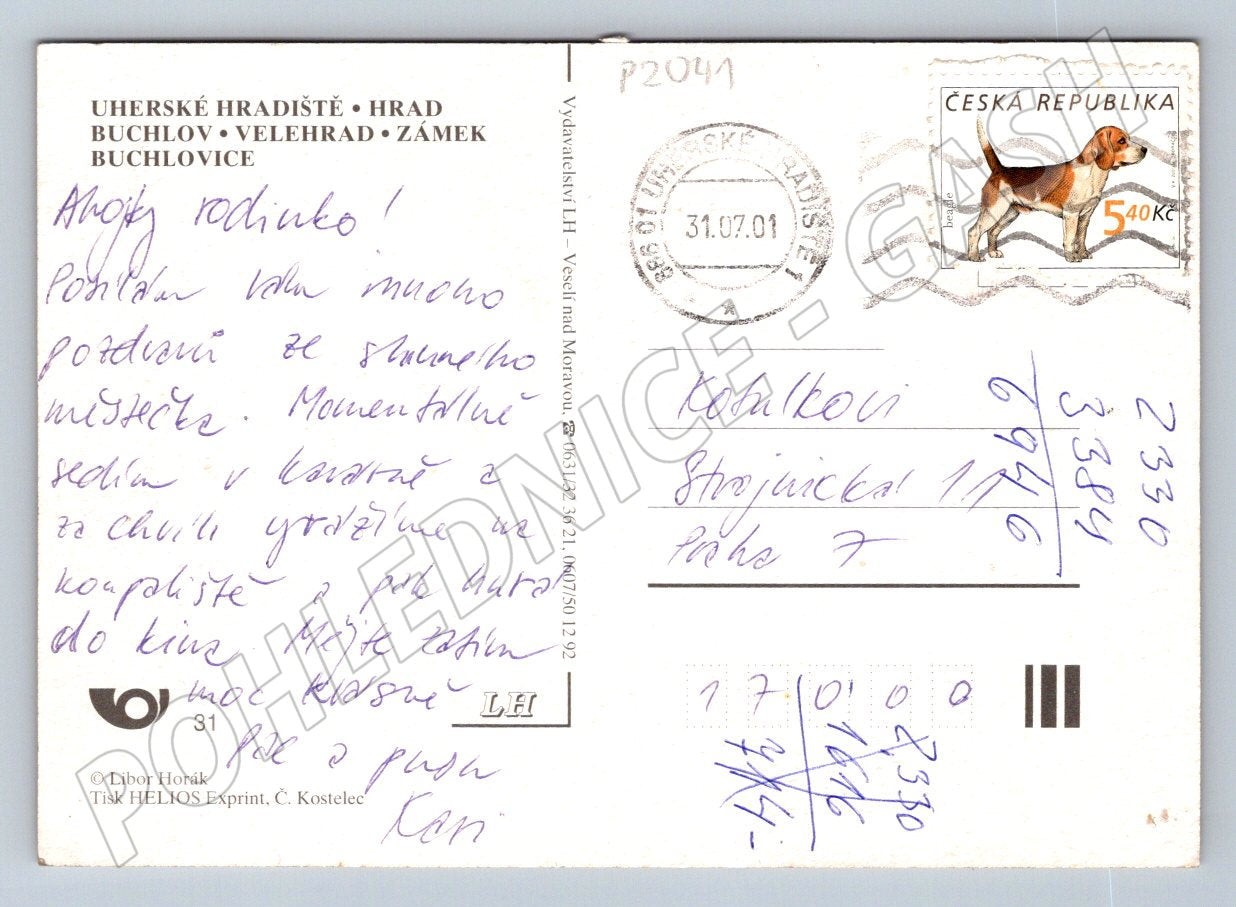 UHERSKÉ HRADIŠTĚ • HRAD
BUCHLOV • VELEHRAD • ZÁMEK
BUCHLOVICE
Ahojky rodinko!
Posílám vám mnoho
pozdravů ze slunného
městečka. Momentálně
sedím v kavárně a
za chvíli vyrážíme na
koupaliště a pak hurá
do kina. Mějte zatím
moc krásně
Pac a pusu
31
LH
© Libor Horák
Tisk HELIOS Exprint, Č. Kostelec
Vydavatelství LH – Veselí nad Moravou, ☎ 0631/32 36 21, 0607/50 12 92
P2041
686 01 UHERSKÉ HRADIŠTĚ 1
31.07.01
*
ČESKÁ REPUBLIKA
beagle
5,40 Kč
Kotulkovi
Strojnická 11
Praha 7
17000
2330
3384
6946
2330
1616
POHLEDNICE - GASH